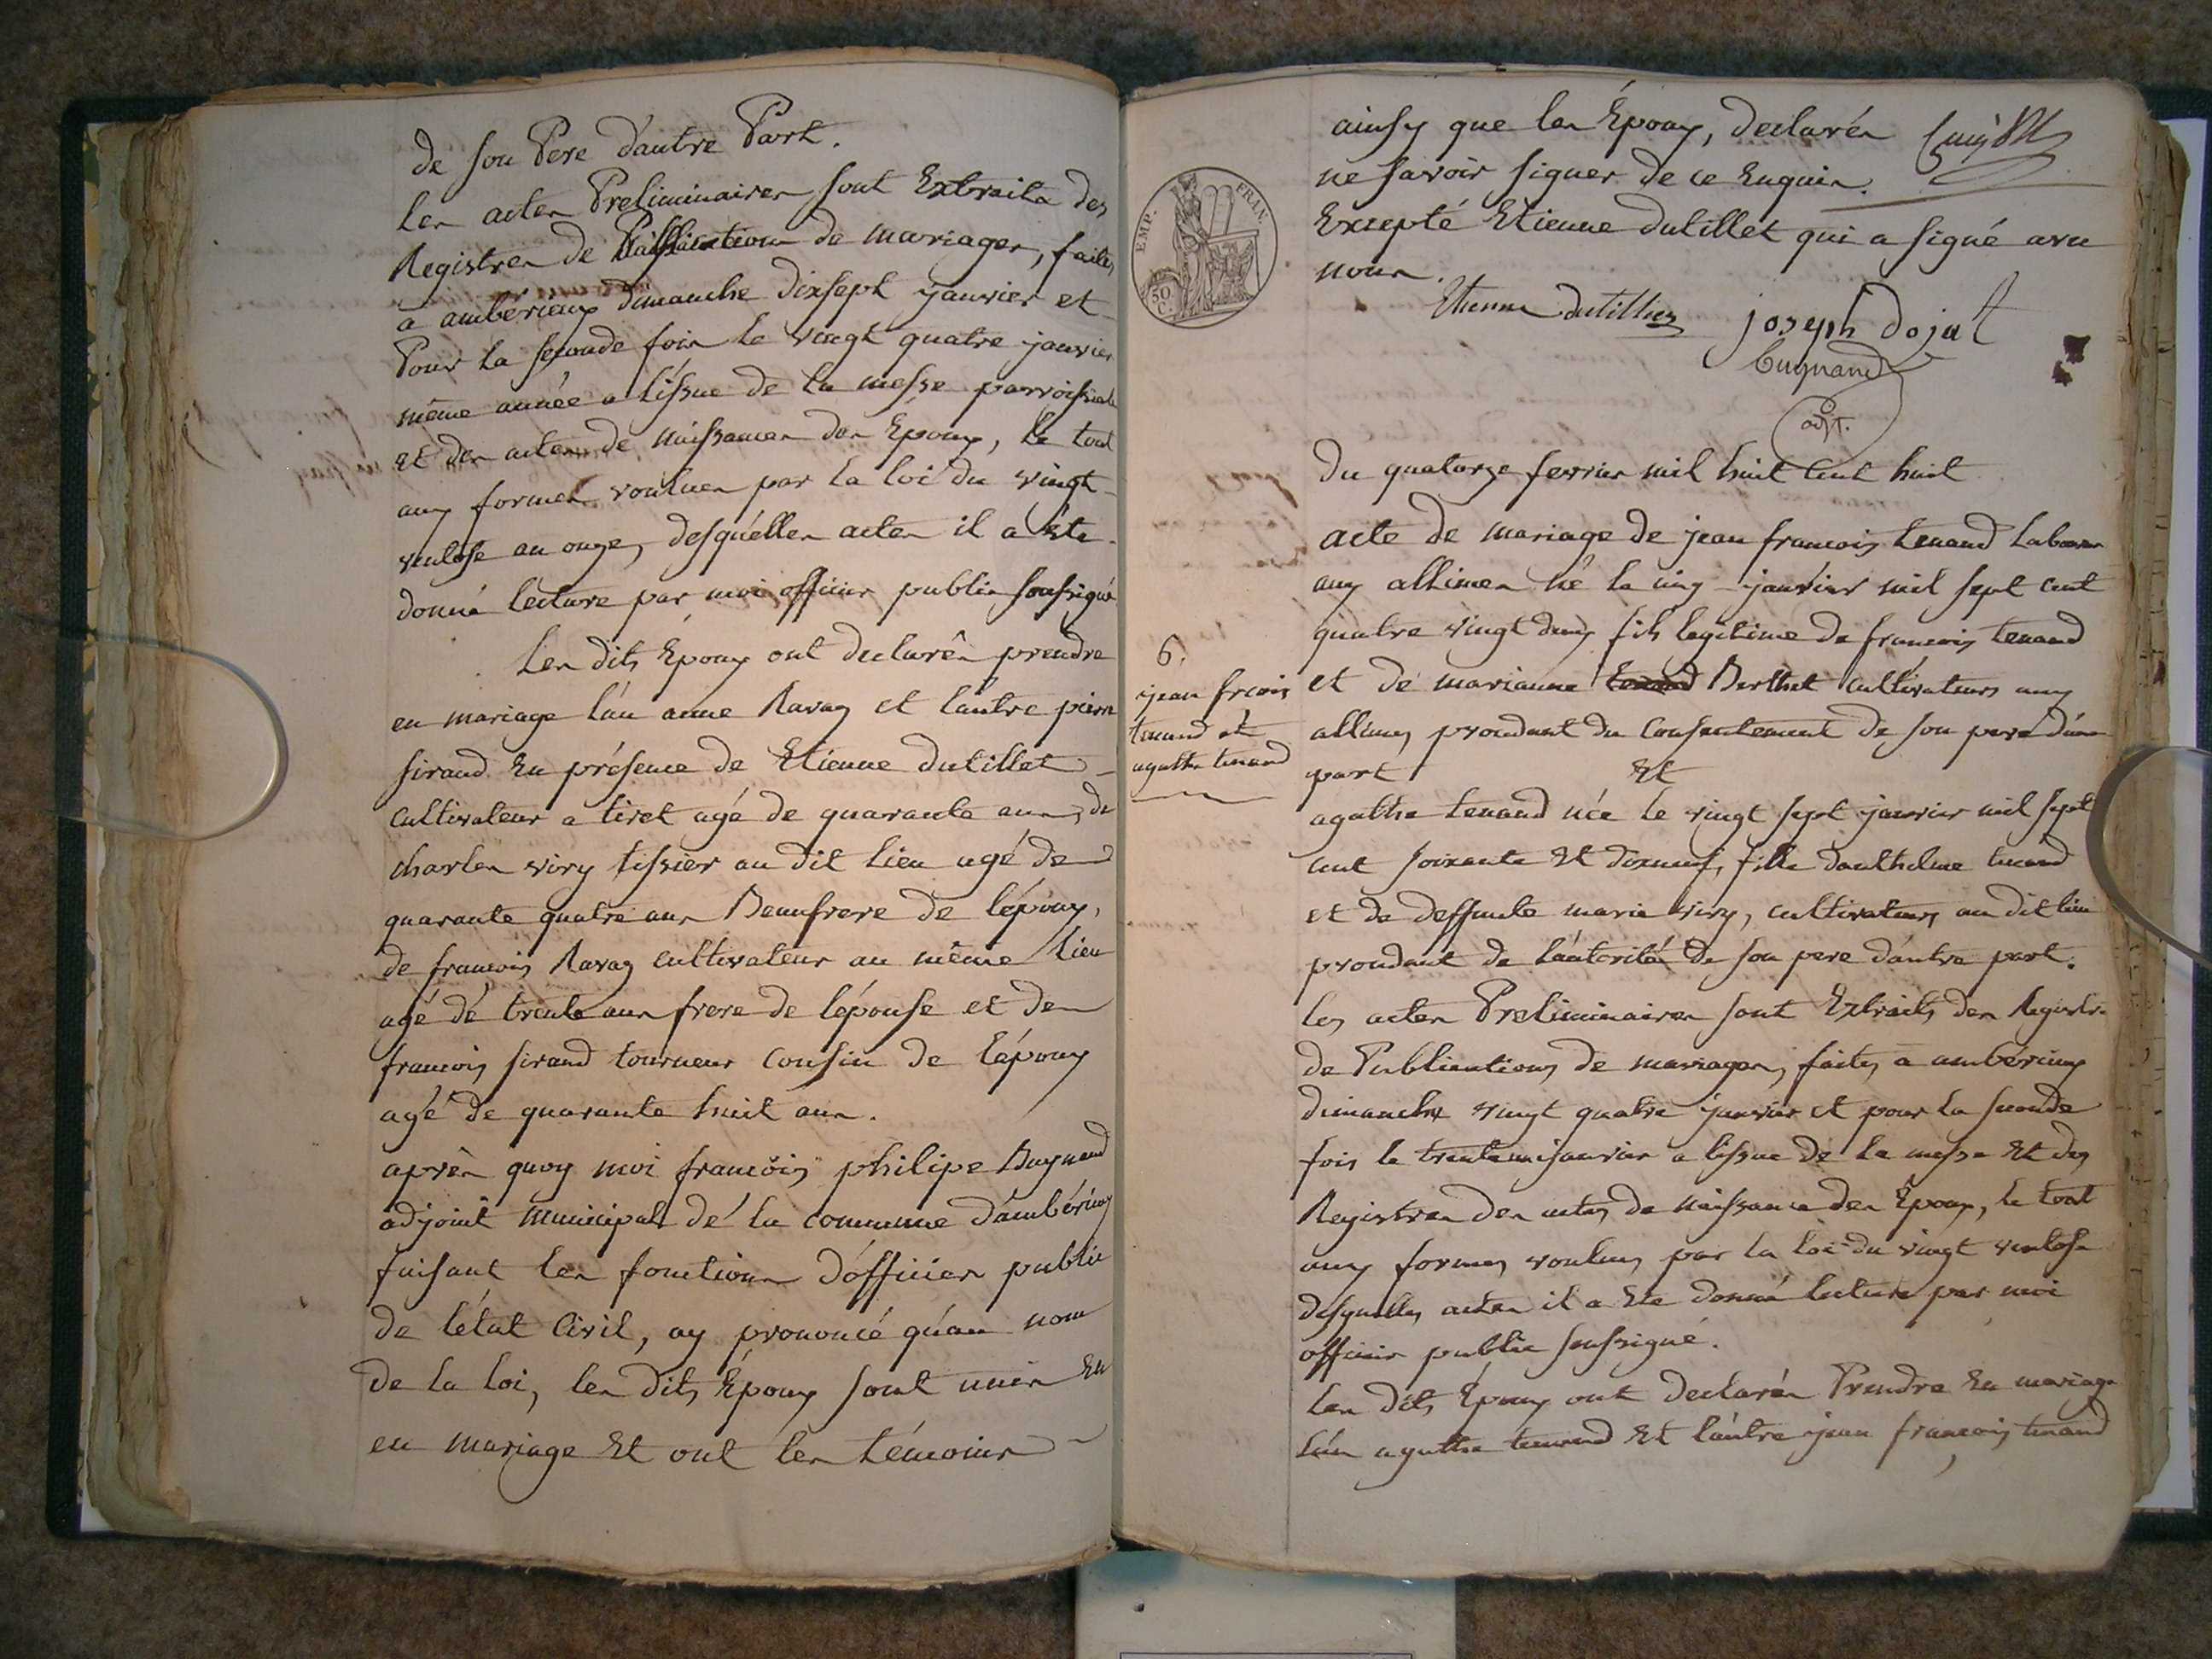 de son Pere d'autre Part.
Les actes Preliminaires sont Extraits des
Registres de Publications de mariages, faites
a ambérieux dimanche dixsept janvier et
Pour la seconde fois le vingt quatre janvier
même année a l'issue de la messe parroissiale
et des actes de naissances des Époux, le tout
aux formes voulues par la loi du vingt
ventose an onze, desquélles actes il a été
donné lecture par moi officier public soussigné
Les dits Époux ont declarés prendre
en mariage l'un anne Ravaz et l'autre pierre
sirand En présence de Etienne dutillet
cultivateur a tiret agé de quarante ans, de
charles viry tissier au dit lieu agé de
quarante quatre ans Beaufrere de l'époux,
de francois Ravaz cultivateur au même lieu
agé de trente ans frere de l'épouse et de
francois sirand tourneur cousin de l'époux
agé de quarante huit ans.
après quoy moi francois philipe Bugnand
adjoint municipal de la commune d'ambérieux
faisant les fonctions d'officier public
de l'état Civil, ay prononcé qu'au nom
de la loi, les dits Époux sont unis en
en mariage Et ont les témoins
ainsy que les Époux, declarés
ne savoir signer de ce Enquis.
Excepté Etienne dutillet qui a signé avec
nous.
EMP. FRAN.
50 C.
Etienne dutillez joseph dojat
Bugnand
adjt.
Du quatorze fevrier mil huit Cent huit
acte de mariage de jean francois tenand Laboureur
aux allimes né le cinq janvier mil sept cent
quatre vingt deux fils legitime de francois tenand
et de marianne tenand Berthet cultivateurs aux
allimes, procedant du consentement de son pere d'une
part Et
6.
jean frcois
tenand et
agathe tenand
agathe tenand née le vingt sept janvier mil sept
cent soixante Et dixneuf, fille d'anthelme tenand
et de deffunte marie viry, cultivateurs au dit lieu
procedant de l'autorité de son pere d'autre part.
les actes Preliminaires sont Extraits des Registres
de Publications de mariages, faites a ambérieux
dimanche vingt quatre janvier et pour la seconde
fois le trente un janvier a l'issue de la messe Et des
Registres des actes de naissance des Époux, le tout
aux formes voulues par la loi du vingt ventose
desquelles actes il a été donné lecture par moi
officier public soussigné.
Les dits Époux ont declarés Prendre En mariage
l'un agathe tenand Et l'autre jean francois tenand